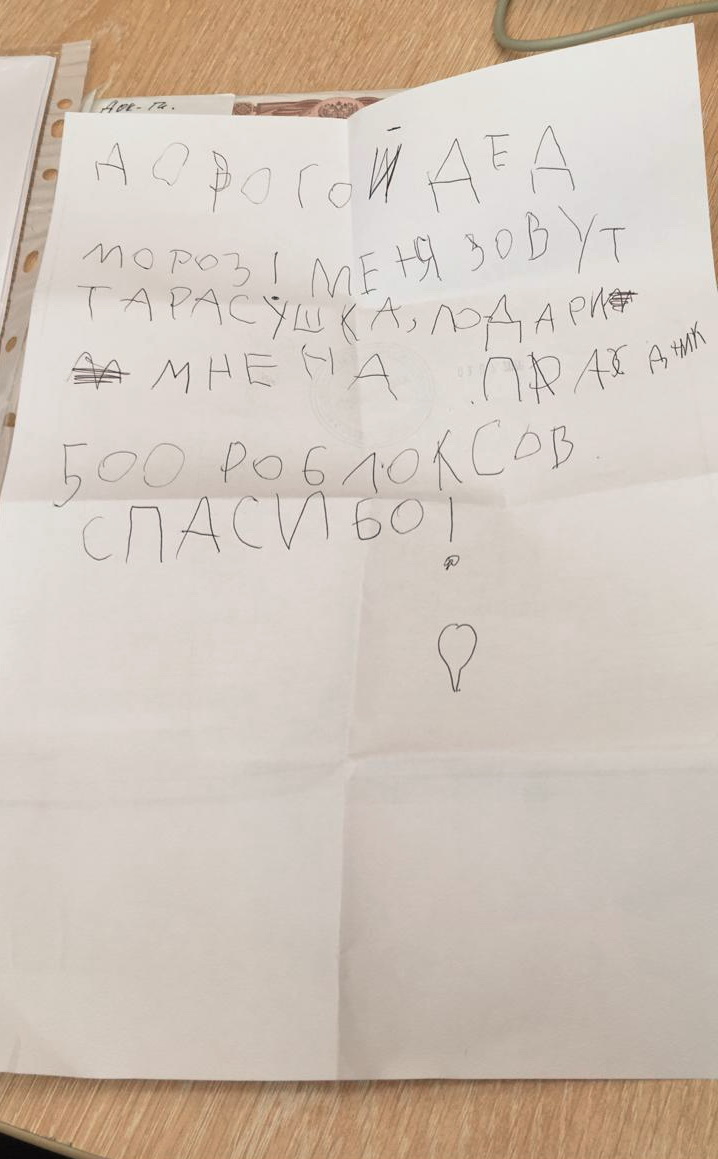 Док-ты.
ДОРОГОЙ ДЕД
МОРОЗ! МЕНЯ ЗОВУТ
ТАРАСУШКА, ПОДАРИ
МНЕ НА
500 РОБЛОКСОВ.
СПАСИБО!